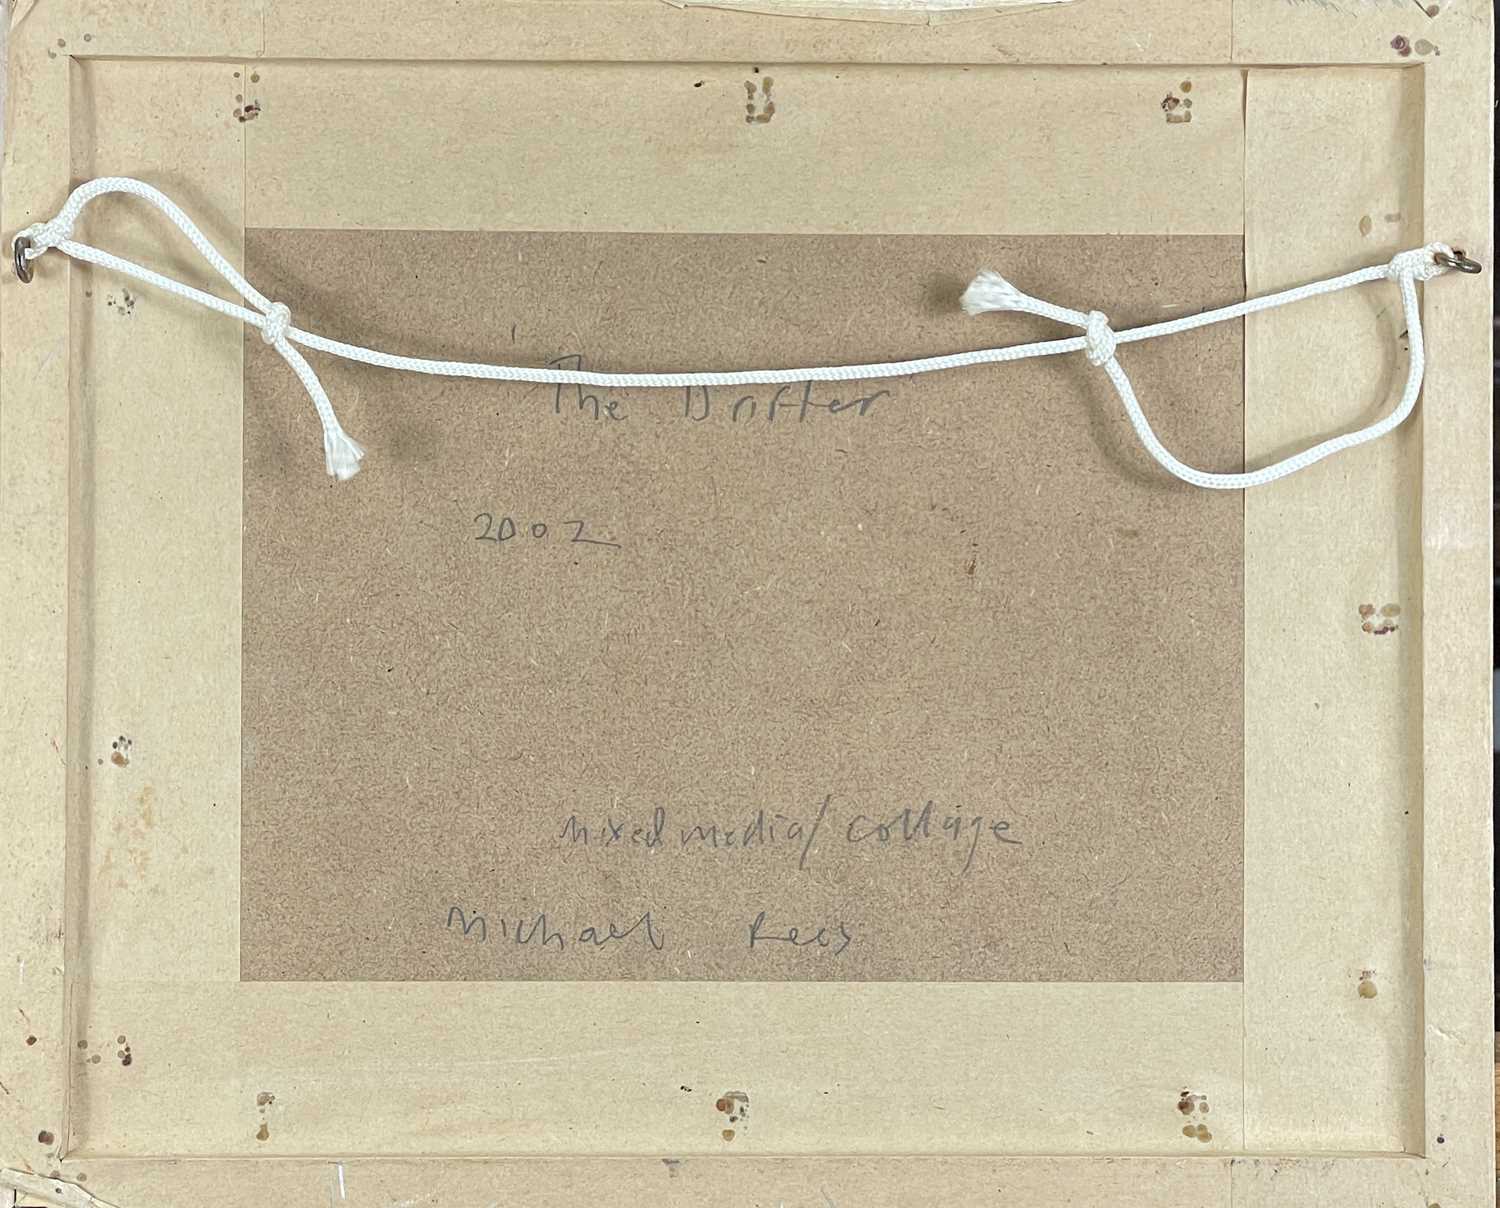 The Drifter
2002
mixed media/collage
Michael Rees